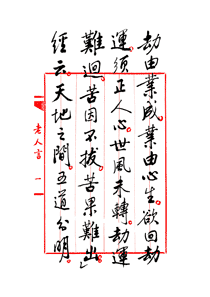 劫由業成業由心生欲回劫
運須正人心世風未轉劫運
難迴苦因不拔苦果難出
經云天地之間五道分明
老人言 一